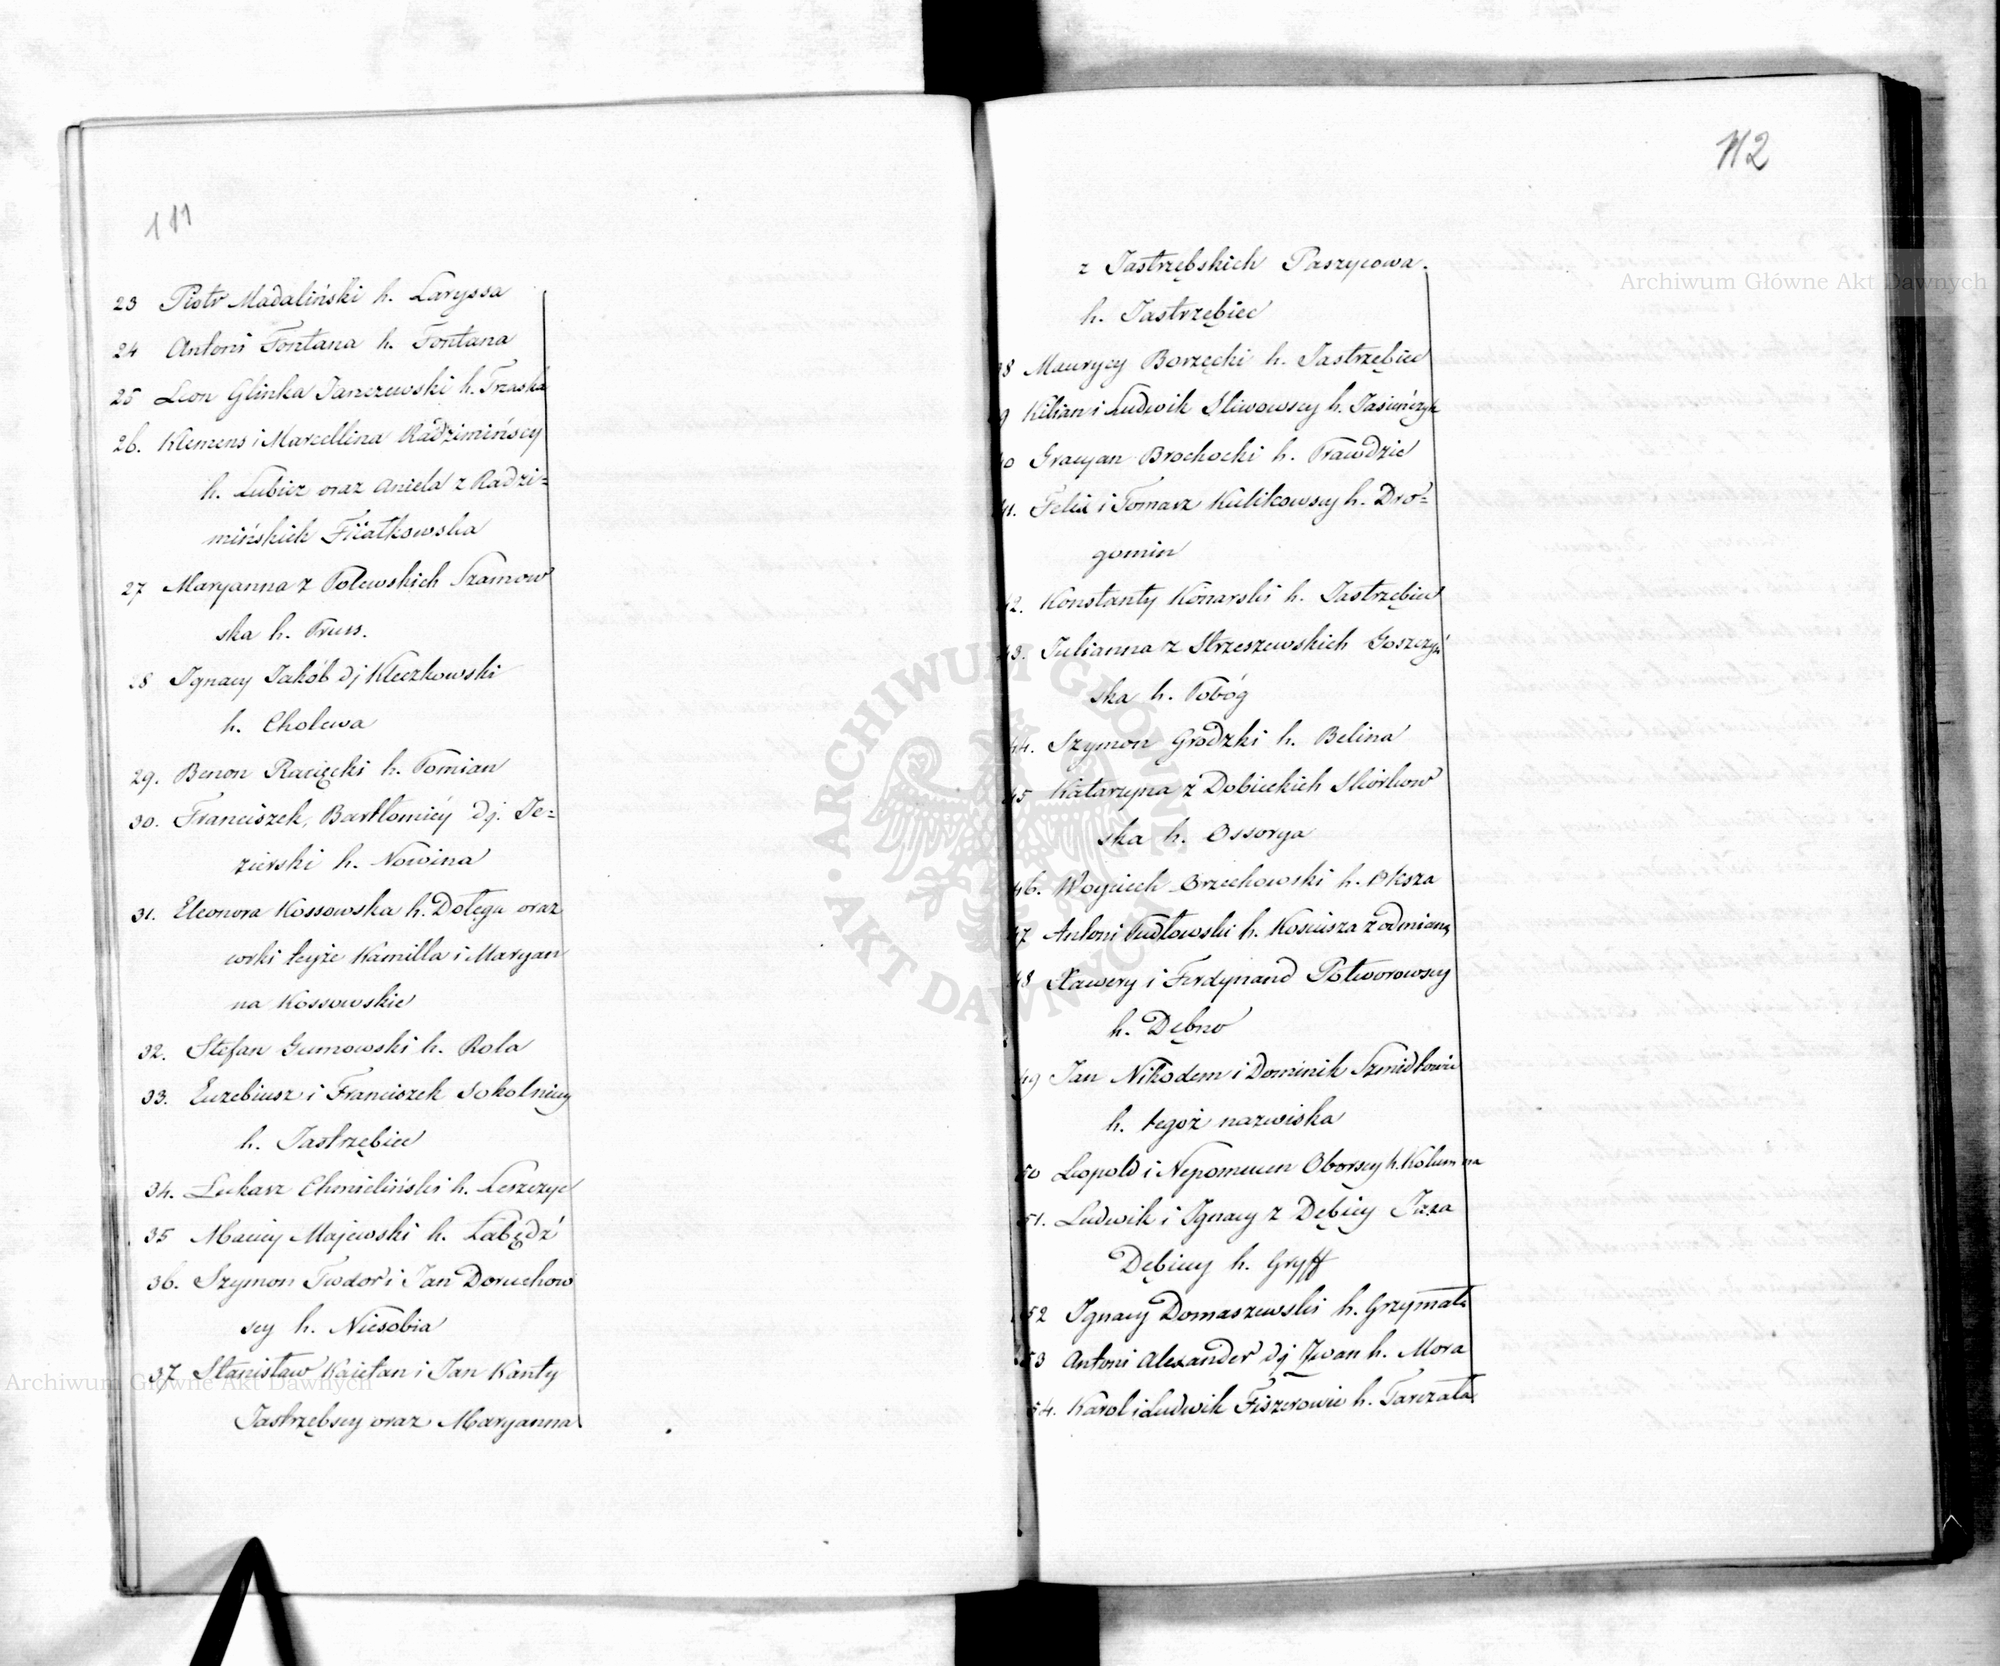 111
23 Piotr Madaliński h. Laryssa
24 Antoni Fontana h. Fontana
25 Leon Glinka Janczewski h. Trzaska
26. Klemens i Marcellina Radzimińscy
h. Lubicz oraz Aniela z Radzi=
mińskich Fiiałkowska
27 Maryanna z Polewskich Szamow
ska h. Pruss.
28 Ignacy Jakób dj Kleczkowski
h. Cholewa
29. Benon Racięcki h. Pomian
30. Franciszek, Bartłomiéy dj. Je=
zierski h. Nowina
31. Eleonora Kossowska h. Dołęga oraz
córki teyże Kamilla i Maryan
na Kossowskie
32. Stefan Gumowski h. Rola
33. Euzebiusz i Franciszek Sokolniccy
h. Jastrzębiec
34. Łukasz Chmieliński h. Leszczyc
35 Maciey Majewski h. Łabędź
36. Szymon Twdor i Jan Doruchow
scy h. Niesobia
37. Stanisław Kaietan i Jan Kanty
Jastrzębscy oraz Maryanna
112
z Jastrzębskich Paszycowa.
h. Jastrzębiec
38 Maurycy Borzęcki h. Jastrzębiec
39 Kilian i Ludwik Śliwowscy h. Jasieńczyk
40 Gracyan Brochocki h. Prawdzic
41. Felix i Tomasz Kulikowscy h. Dro=
gomir
42. Konstanty Konarski h. Jastrzębiec
43. Julianna z Strzeszewskich Goszczyń
ska h. Pobóg
44. Szymon Grodzki h. Belina
45 Katarzyna z Dobieckich Skórkow
ska h. Ossorya
46. Woyciech Orzechowski h. Oksza
47 Antoni Pudłowski h. Kosciesza z odmianą
48 Xawery i Ferdynand Potworowscy
h. Dębno
49 Jan Nikodem i Dominik Szmidtowie
h. tegoż nazwiska
50 Leopold i Nepomucen Oborscy h. Kolumna
51. Ludwik i Ignacy z Dębicy Jaxa
Dębiccy h. Gryff
52 Ignacy Domaszewski h. Grzymała
53 Antoni Alexander dj Iwan h. Mora
54. Karol i Ludwik Fiszerowie h. Tarczała
Archiwum Główne Akt Dawnych
Archiwum Główne Akt Dawnych
ARCHIWUM GŁÓWNE · AKT DAWNYCH ·